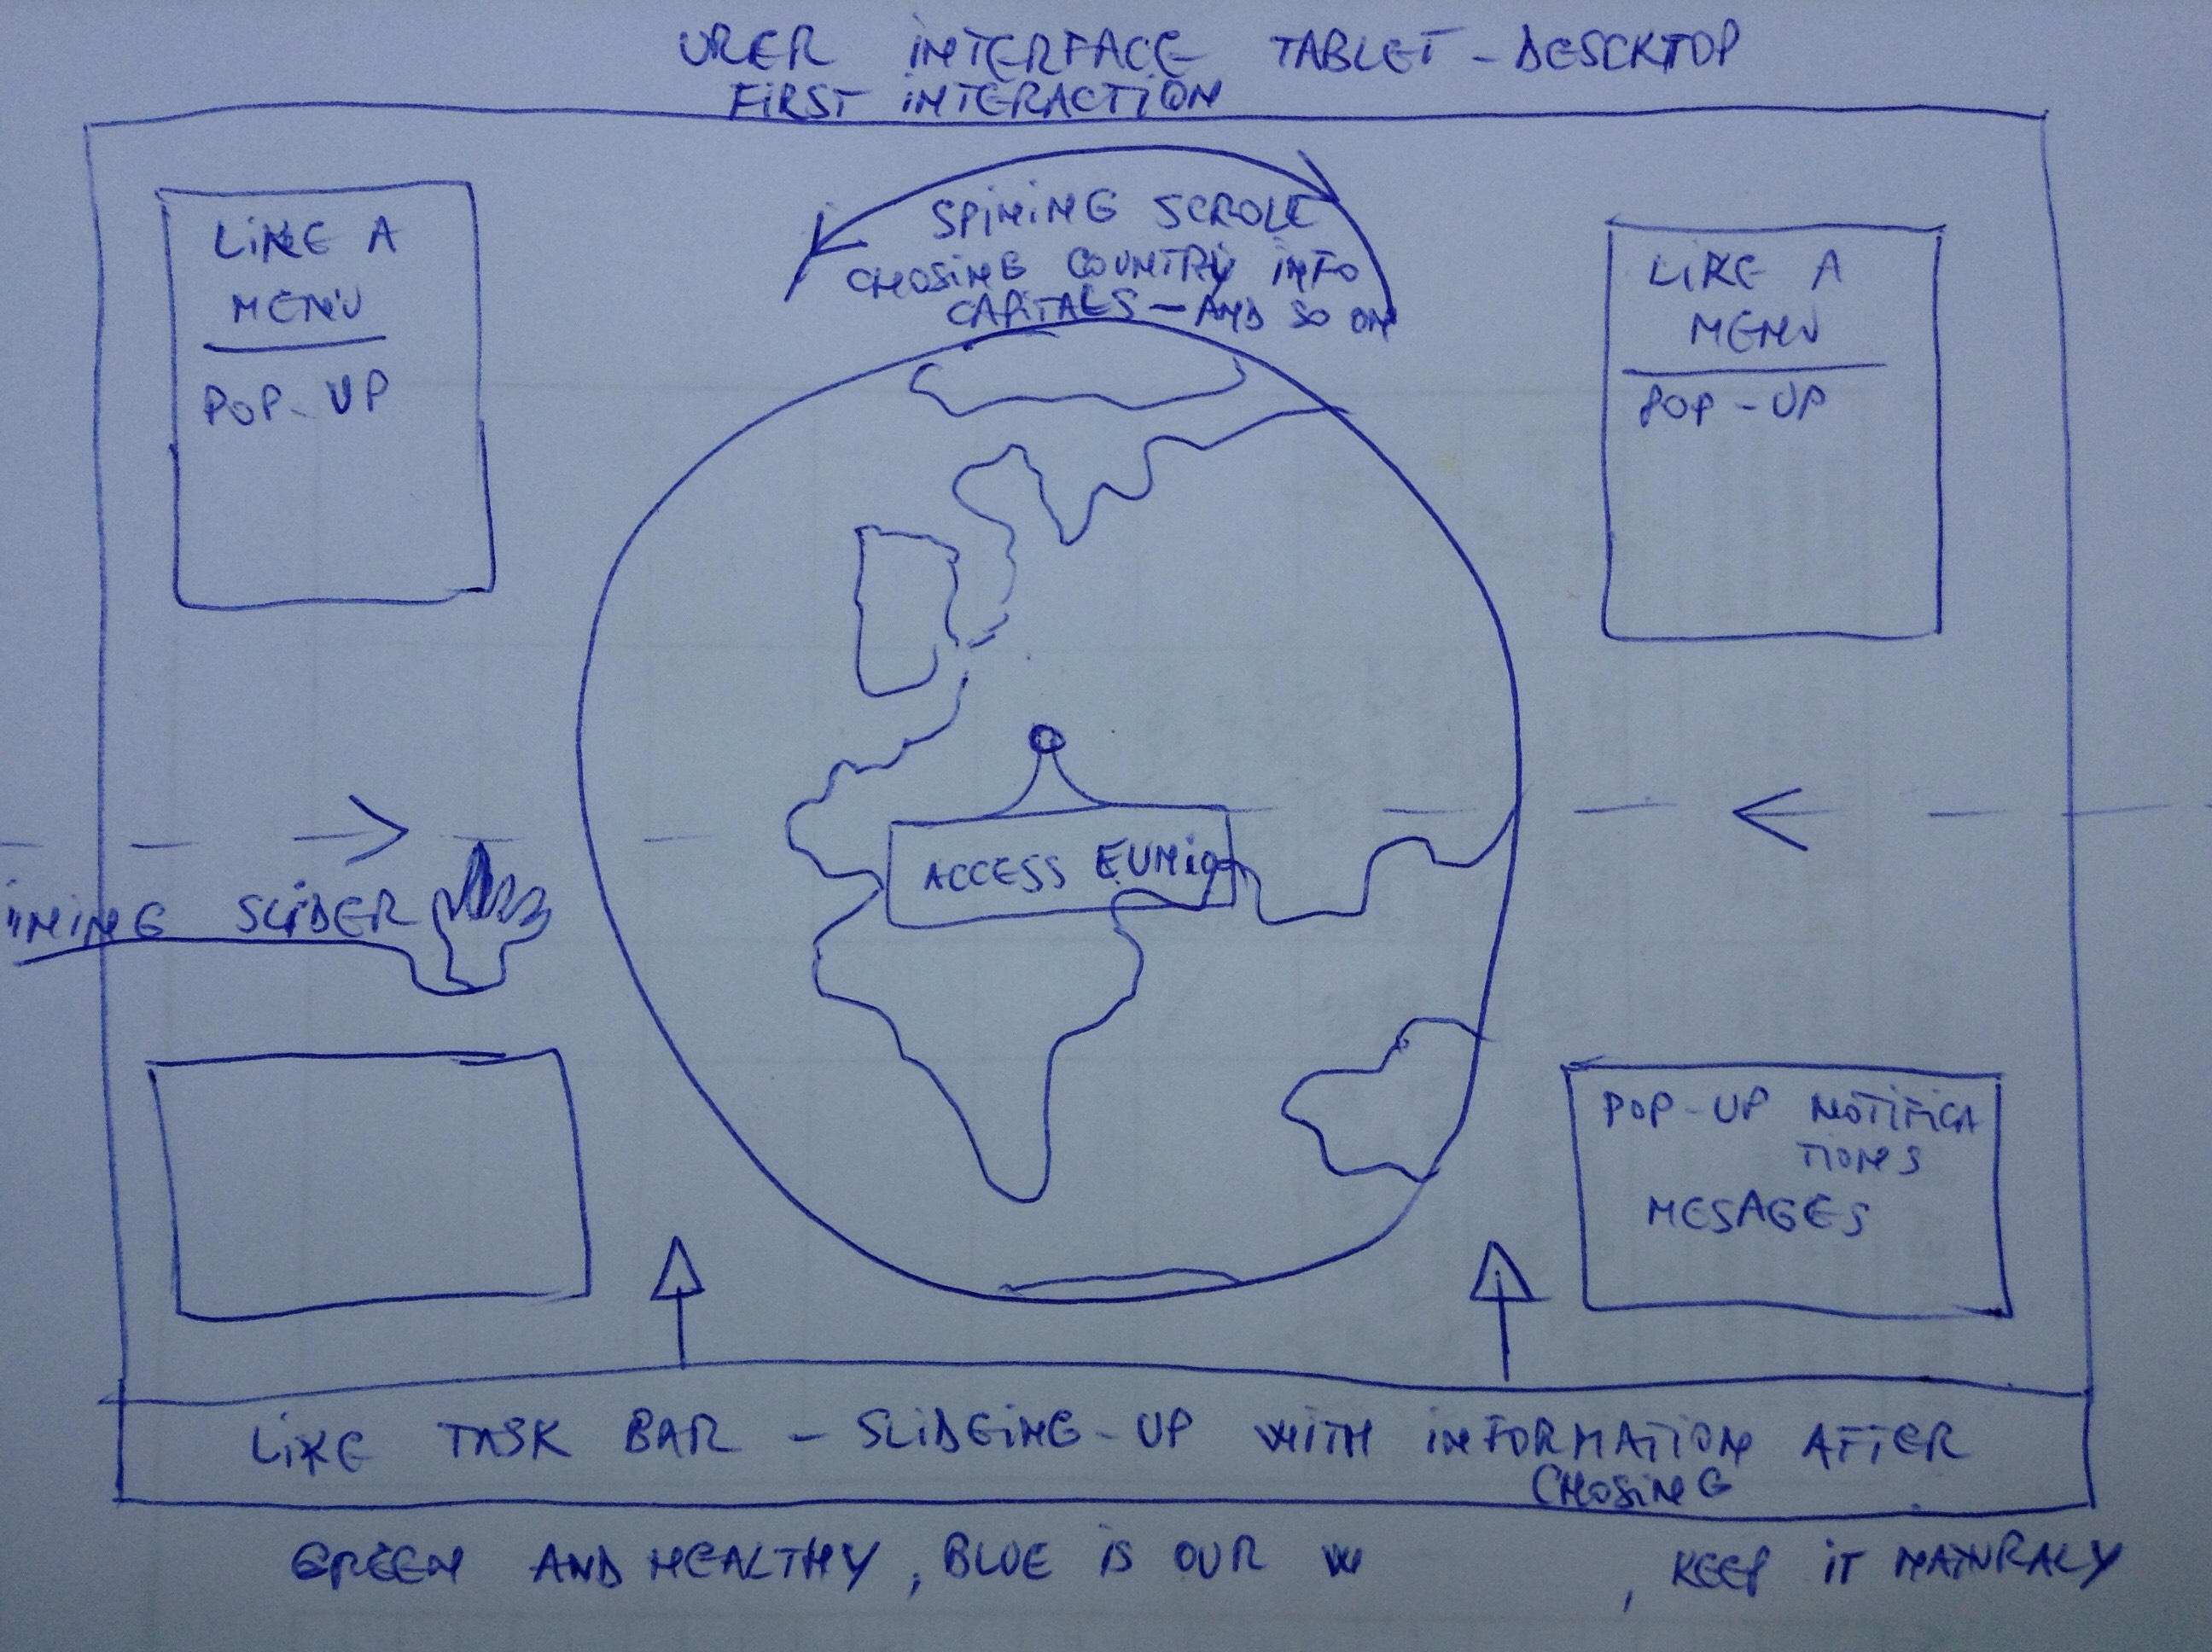 URER INTERFACE TABLET - DESCKTOP
FIRST INTERACTION
LIKE A
MENU
POP-UP
SPINING SCROLL
CHOSING COUNTRY INFO
CAPITALS - AND SO ON
LIKE A
MENU
POP-UP
ACCESS
INING SLIDER
POP-UP NOTIFICA
TIONS
MESAGES
LIKE TASK BAR - SLIDEING-UP WITH INFORMATION AFTER
CHOSING
GREEN AND HEALTHY, BLUE IS OUR W , KEEP IT NATURALY